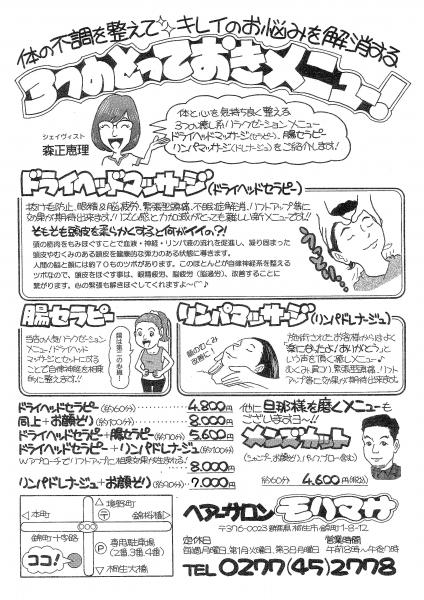 体の不調を整えて キレイのお悩みを解消する
3つのとっておきメニュー!
シェイヴィスト
森正恵理
体と心を気持ち良く整える
3つの癒し系リラクゼーションメニュー
ドライヘッドマッサージ(セラピー)、腸セラピー
リンパマッサージ(ドレナージュ)をご紹介します!
ドライヘッドマッサージ(ドライヘッドセラピー)
抜け毛防止、眼精&脳疲労、緊張型頭痛、不眠症解消、リフトアップ等に
効果が期待出来ます!リズム感と力加減がとっても難しい新メニューです!
そもそも頭皮を柔らかくすると何がイイの?!
頭の筋肉をもみほぐすことで血液・神経・リンパ液の流れを促進し、凝り固まった
頭皮やむくみのある頭皮を健康的な弾力のある状態に導きます。
人間の脳と顔には約70ものツボがあります。このほとんどが自律神経系を整える
ツボなので、頭皮をほぐす事は、眼精疲労、脳疲労(脳過労)、改善することに
繋がります。心の緊張も解きほぐしてくれますよ~♡♪
腸セラピー
当店の人気リラクゼーション
メニュー!ドライヘッド
マッサージとセットにする
ことで自律神経を相乗
的に整えます!!
腸は第二の心臓!
リンパマッサージ(リンパドレナージュ)
顔のむくみ
改善に
施術されたお客様からはよく
楽に
という声を頂く嬉しいメニュー♪
むくみ、肩こり、緊張型頭痛、リフト
アップ等に効果が期待出来ます!!
ドライヘッドセラピー(約60分) 4.800円
同上+お顔そり(約100分) 8.000円
ドライヘッドセラピー+腸セラピー(約70分) 5.600円
ドライヘッドセラピー+リンパドレナージュ(約100分)
Wアプローチでリフトアップに相乗効果が生まれる!
8.000円
リンパドレナージュ+お顔そり(約90分) 7.000円
他に旦那様を磨くメニューも
ございます~!!
メンズカット
(シャンプー、お顔そり、ハンドブロー含む)
(約60分) 4.600円(税込)
↑境野町
←本町
錦桜橋→
錦町十字路
ココ!
P
専用駐車場
(2番、3番、4番)
↓桐生大橋
ヘアーサロン モリマサ
〒376-0023群馬県桐生市錦町1-8-12
定休日
毎週月曜日、第1火曜日、第3日月曜日
営業時間
午前8時~午後7時
TEL 0277(45)2778